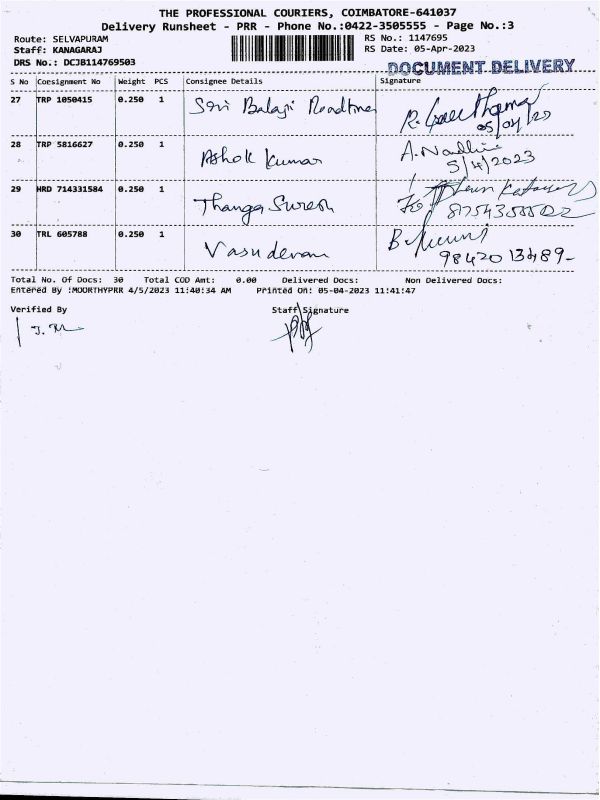 THE PROFESSIONAL COURIERS, COIMBATORE-641037
Delivery Runsheet - PRR - Phone No.:0422-3505555 - Page No.:3
Route: SELVAPURAM RS No.: 1147695
Staff: KANAGARAJ RS Date: 05-Apr-2023
DRS No.: DCJB114769503 DOCUMENT DELIVERY
S No Consignment No Weight PCS Consignee Details Signature
27 TRP 1050415 0.250 1 Sri Balaji
05/04/23
28 TRP 5816627 0.250 1 Ashok Kumar A. Nandhini
5/4/2023
29 HRD 714331584 0.250 1 Thanga Suresh
30 TRL 605788 0.250 1 Vasudevan
Total No. Of Docs: 30 Total COD Amt: 0.00 Delivered Docs: Non Delivered Docs:
Entered By :MOORTHYPRR 4/5/2023 11:40:34 AM Printed On: 05-04-2023 11:41:47
Verified By Staff Signature